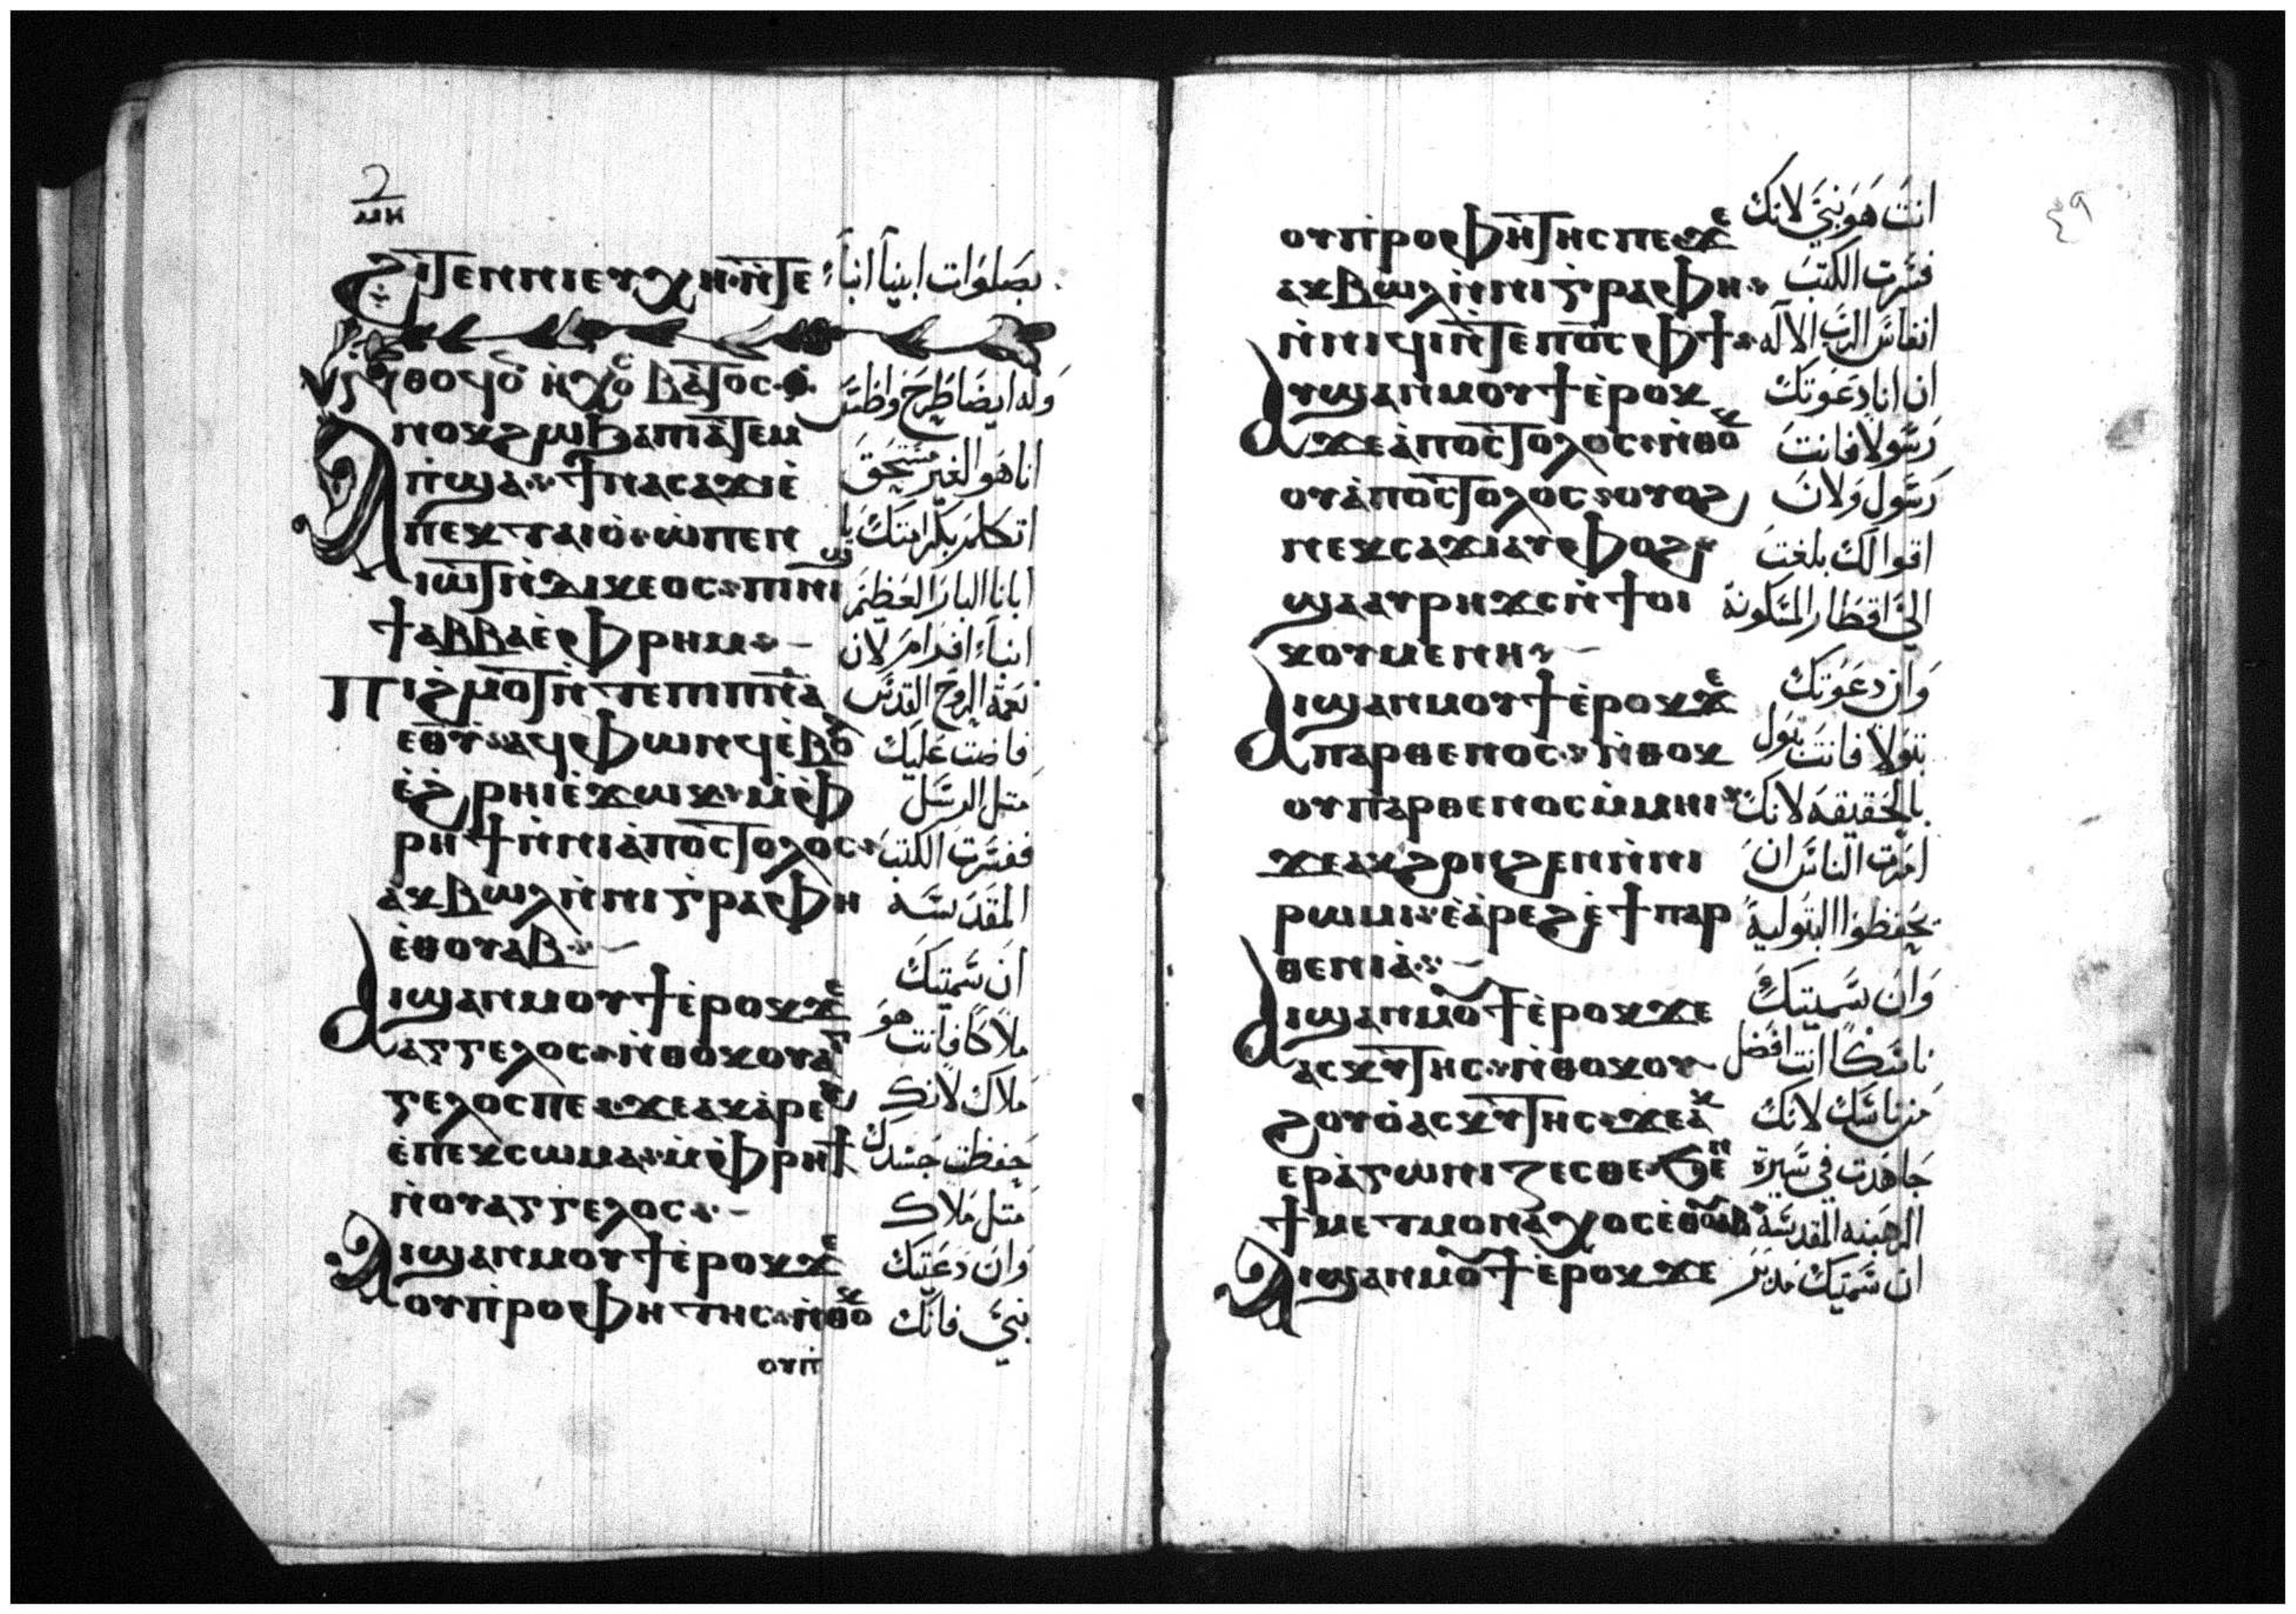 ⲙⲏ
ϩⲓⲧⲉⲛ ⲛⲓⲉⲩⲭⲏ ⲛ̀ⲧⲉ بصلوات ابينا انبا
ⲃⲁⲧⲟⲥ وله ايضا طرح واطس
ⲁⲛⲟⲕ ϩⲱ ϧⲁ ⲡⲓⲁⲧⲉⲙ
ⲡ̀ϣⲁ ϯⲛⲁⲥⲁϫⲓ ⲉ̀ انا هو الغير مستحق
ⲡⲉⲕⲧⲁⲓⲟ̀ ⲱ̀ ⲡⲉⲛ اتكلم بكرامتك يا
ⲓⲱⲧ ⲛ̀ⲇⲓⲕⲉⲟⲥ ⲡⲓⲛⲓϣ ابانا البار العظيم
ϯ ⲁⲃⲃⲁ ⲉ̀ⲫⲣⲉⲙ انبا افرام لان
ⲡⲓϩⲙⲟⲧ ⲛ̀ⲧⲉ ⲡⲓⲡⲛ̅ⲁ̅ نعمة الروح القدس
ⲉⲑⲩ ⲁϥⲫⲱⲛ ϥⲉ̀ⲃⲟ فاضت عليك
ⲉ̀ϩⲣⲏⲓ ⲉ̀ϫⲱⲕ ⲙ̀ⲫ متل الرسل
ⲣⲏϯ ⲛ̀ⲛⲓⲁ̀ⲡⲟⲥⲧⲟⲗⲟⲥ ففسرت الكتب
ⲁ̀ⲕⲃⲱⲗ ⲛ̀ⲛⲓⲅⲣⲁⲫⲏ المقدسة
ⲉ̀ⲑⲟⲩⲁⲃ
ⲁⲓϣⲁⲛⲙⲟⲩϯ ⲉ̀ⲣⲟⲕ ϫⲉ ان سميتك
ⲁⲅⲅⲉⲗⲟⲥ ⲛ̀ⲑⲟⲕ ⲟⲩⲁⲅ ملاكا فانت هو
ⲅⲉⲗⲟⲥ ⲡⲉ ϫⲉ ⲁⲕⲁ̀ⲣⲉϩ ملاك لانك
ⲉ̀ⲡⲉⲕⲥⲱⲙⲁ ⲙ̀ⲫⲣⲏϯ حفظت جسدك
ⲛ̀ⲟⲩⲁⲅⲅⲉⲗⲟⲥ متل ملاك
ⲁⲓϣⲁⲛⲙⲟⲩϯ ⲉ̀ⲣⲟⲕ ϫⲉ وان دعيتك
ⲟⲩⲡ̀ⲣⲟⲫⲏⲧⲏⲥ ⲛ̀ⲑⲟⲕ نبي فانك
ⲟⲩⲡ̀
٤٩
ⲟⲩⲡ̀ⲣⲟⲫⲏⲧⲏⲥ ⲡⲉ ϫⲉ انت هو نبي لانك
ⲁⲕⲃⲱⲗ ⲛ̀ⲛⲓⲅⲣⲁⲫⲏ فسرت الكتب
ⲛ̀ⲛⲓϥⲓ ⲛ̀ⲧⲉ ⲡⲟ̅ⲥ̅ ⲫϯ انفاس الرب الاله
ⲁⲩϣⲁⲛⲙⲟⲩϯ ⲉ̀ⲣⲟⲕ ان انا دعوتك
ϫⲉ ⲁ̀ⲡⲟⲥⲧⲟⲗⲟⲥ ⲛ̀ⲑⲟⲕ رسولا فانت
ⲟⲩⲁ̀ⲡⲟⲥⲧⲟⲗⲟⲥ ⲟⲩⲟϩ رسول ولان
ⲛⲉⲕⲥⲁϫⲓ ⲁⲩⲫⲟϩ اقوالك بلغت
ϣⲁ ⲁⲩⲣⲏϫⲥ ⲛ̀ϯⲟⲓ الى اقطار المسكونة
ⲕⲟⲩⲙⲉⲛⲏ
ⲁⲓϣⲁⲛⲙⲟⲩϯ ⲉ̀ⲣⲟⲕ ϫⲉ وان دعوتك
ⲡⲁⲣⲑⲉⲛⲟⲥ ⲛ̀ⲑⲟⲕ بتولا فانت بتول
ⲟⲩⲡⲁⲣⲑⲉⲛⲟⲥ ⲙ̀ⲙⲏⲓ بالحقيقه لانك
ϫⲉ ⲁⲕϩⲟⲛϩⲉⲛ ⲛ̀ⲛⲓ امرت الناس ان
ⲣⲱⲙⲓ ⲉ̀ⲁ̀ⲣⲉϩ ⲉ̀ϯⲡⲁⲣ يحفظوا البتولية
ⲑⲉⲛⲓⲁ̀
ⲁⲓϣⲁⲛⲙⲟⲩϯ ⲉ̀ⲣⲟⲕ ϫⲉ وان سميتك
ⲁⲥⲕⲩⲧⲏⲥ ⲛ̀ⲑⲟⲕ ⲟⲩ ناسكا انت افضل
ϩⲟⲩⲟ̀ ⲁⲥⲕⲩⲧⲏⲥ ϫⲉ ⲁⲕ من ناسك لانك
ⲉⲣⲁ̀ⲅⲱⲛⲓⲍⲉⲥⲑⲉ ϧⲉⲛ جاهدت في سيرة
ϯⲙⲉⲧⲙⲟⲛⲁⲭⲟⲥ ⲉⲑⲟⲩⲁⲃ الرهبنه المقدسة
ⲁⲓϣⲁⲛⲙⲟⲩϯ ⲉ̀ⲣⲟⲕ ϫⲉ ان سميتك مدبر